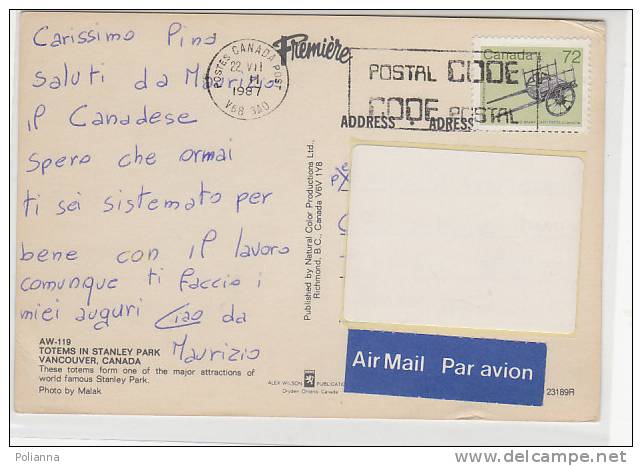 Carissimo Pino
saluti da Maurizio
il Canadese
Spero che ormai
ti sei sistemato per
bene con il lavoro
comunque ti faccio i
miei auguri Ciao da
Maurizio
AW-119
TOTEMS IN STANLEY PARK
VANCOUVER, CANADA
These totems form one of the major attractions of
world famous Stanley Park.
Photo by Malak
POSTES CANADA POST
22 VII
1987
V6B 3A0
Première
POSTAL CODE
CODE POSTAL
ADDRESS ADRESS
Canada 72
Published by Natural Color Productions Ltd.,
Richmond, B.C., Canada V6V 1Y8
ALEX WILSON PUBLICATIONS
Dryden Ontario Canada
Air Mail Par avion
23189R
Polianna
www.delcampe.net